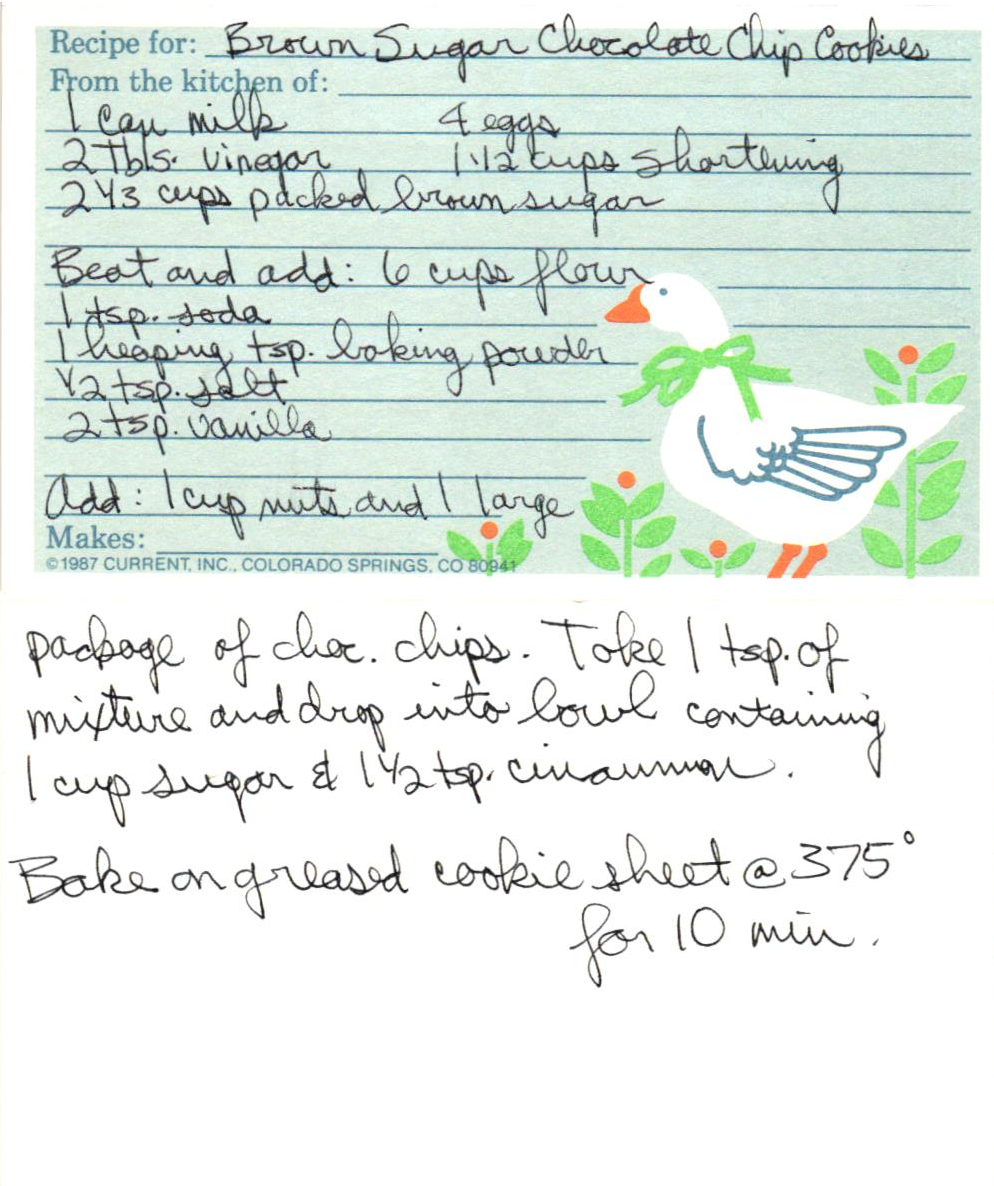 Recipe for: Brown Sugar Chocolate Chip Cookies
From the kitchen of:
1 cup milk 4 eggs
2 Tbls. vinegar 1 1/2 cups shortening
2 1/3 cups packed brown sugar
Beat and add: 6 cups flour
1 tsp. soda
1 heaping tsp. baking powder
1/2 tsp. salt
2 tsp. vanilla
Add: 1 cup nuts and 1 large
Makes:
©1987 CURRENT, INC., COLORADO SPRINGS, CO 80941
package of choc. chips. Take 1 tsp. of
mixture and drop into bowl containing
1 cup sugar & 1 1/2 tsp. cinammon.
Bake on greased cookie sheet @ 375°
for 10 min.